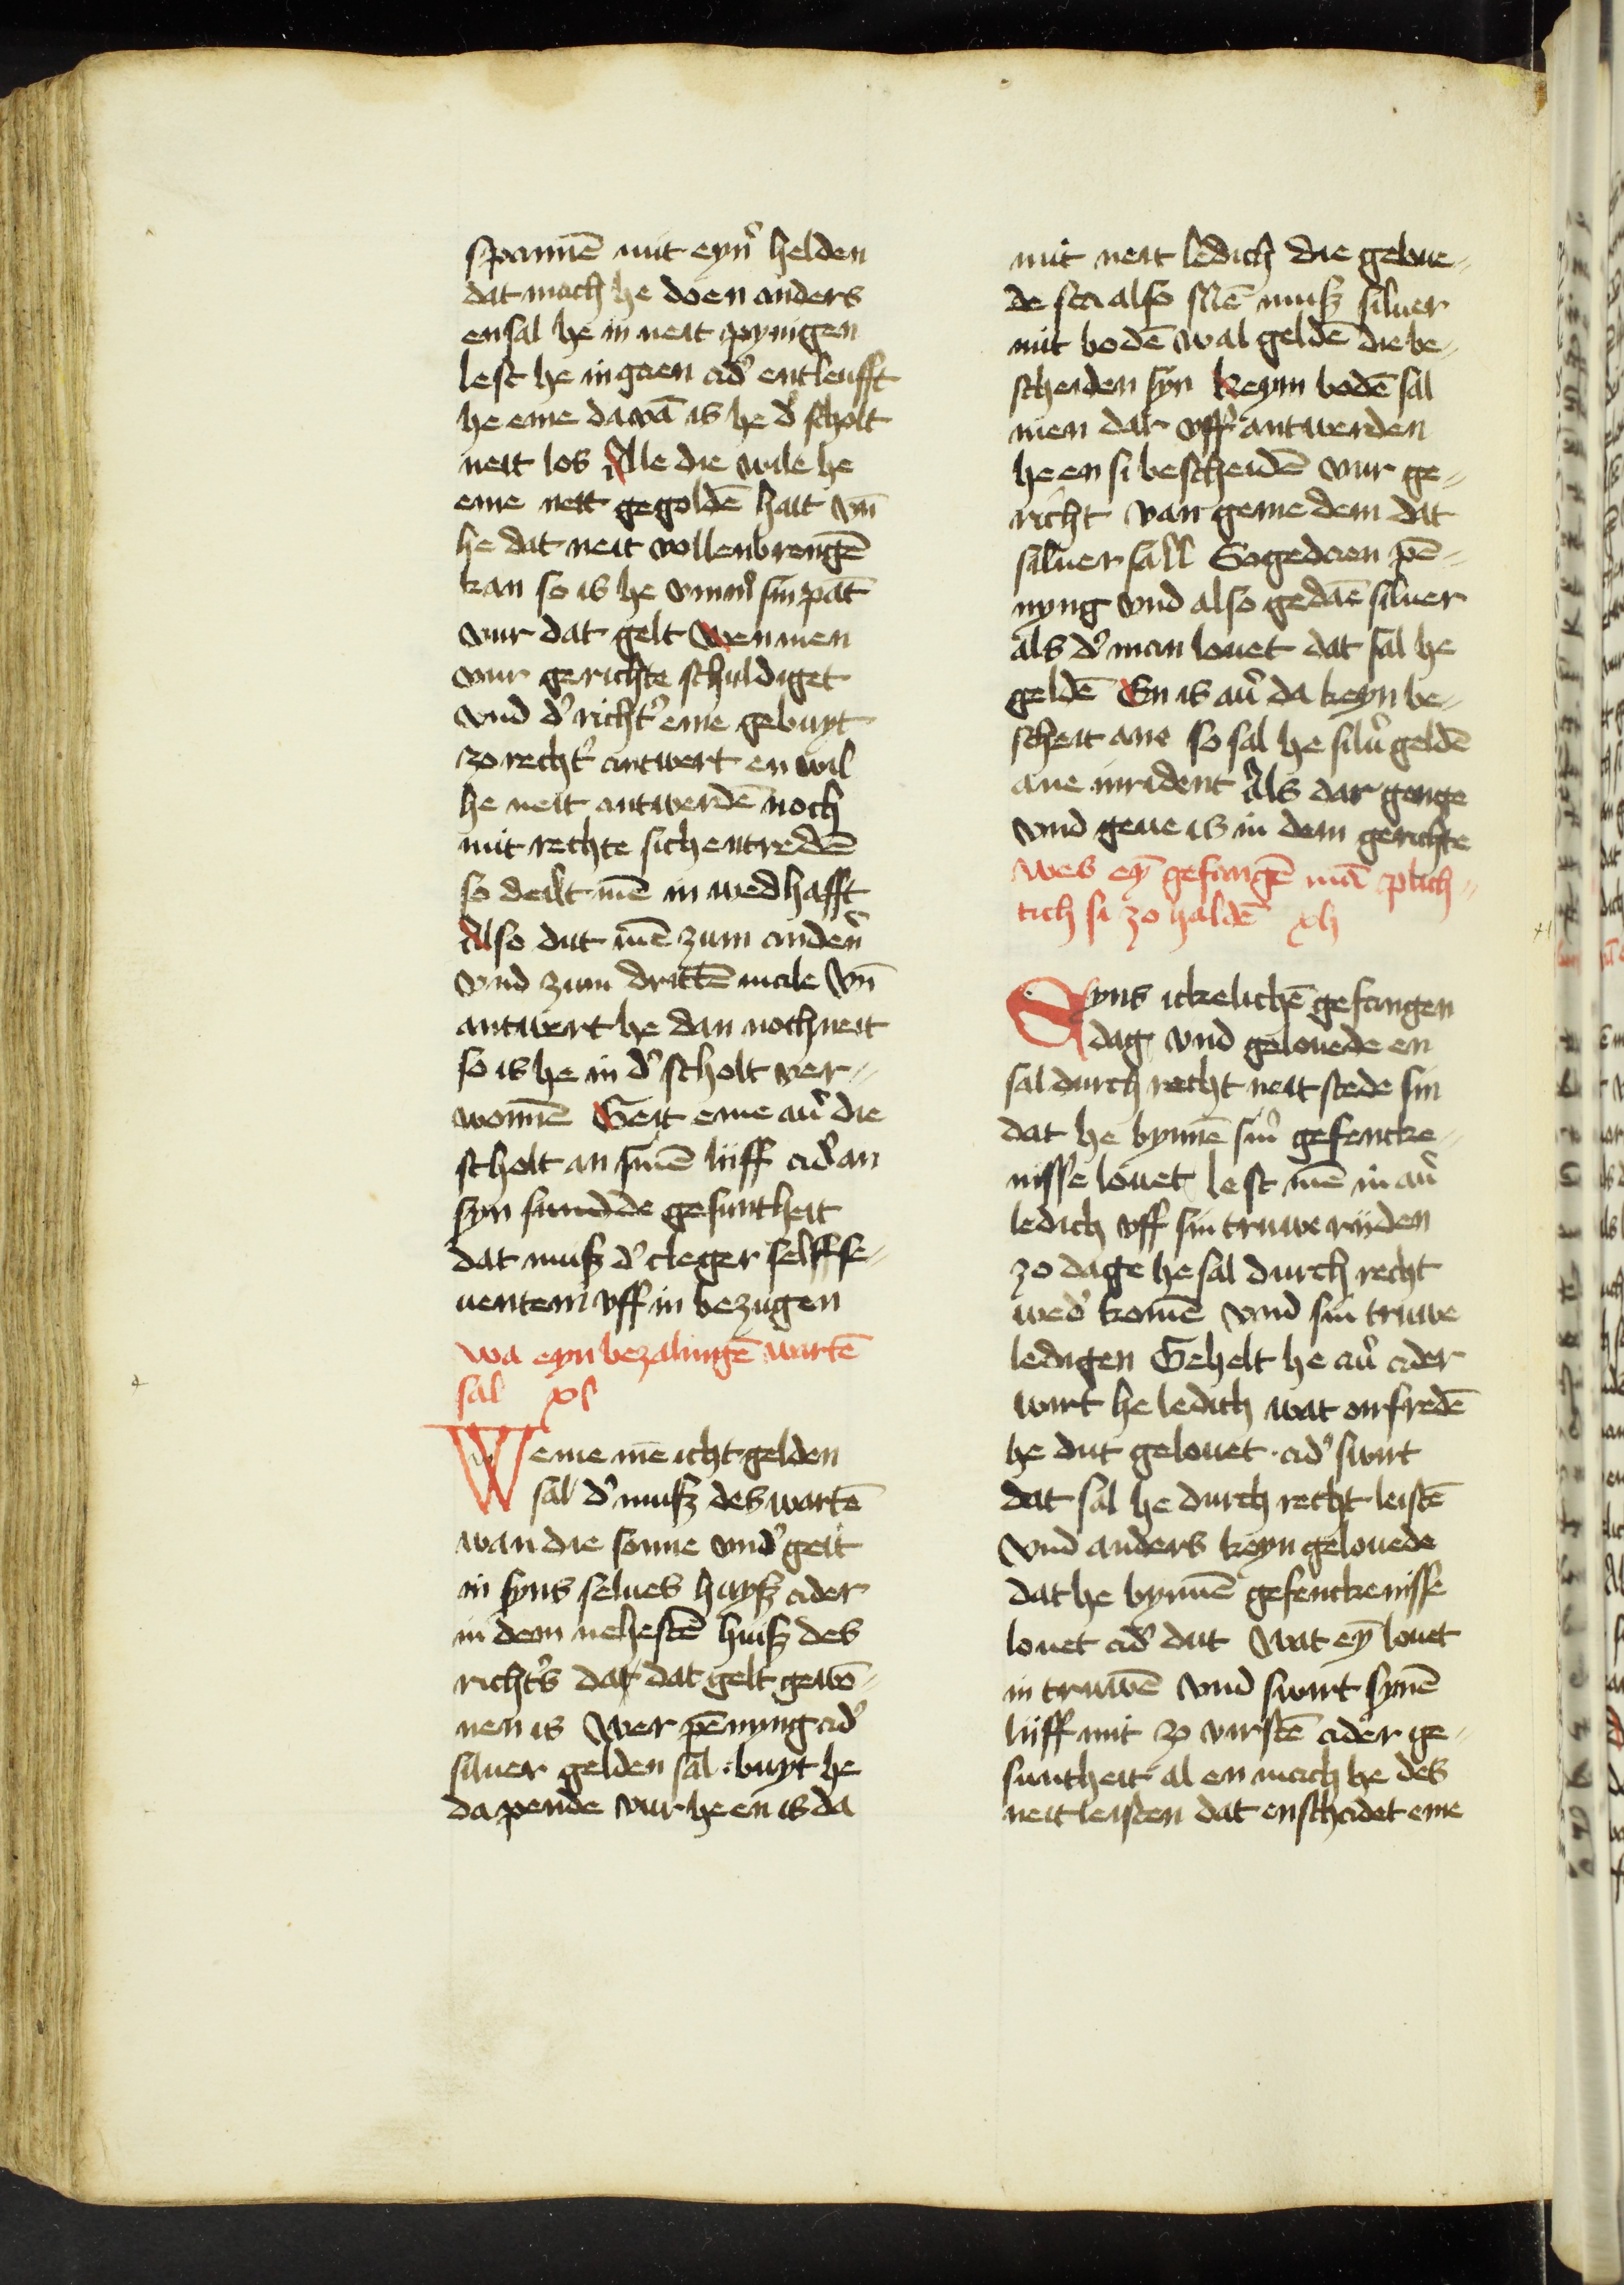 spannē mit eyn̉ helden
dat mach he doen anders
en sal he in neit pynigen
lest he in gaen ad̉ entleufft
he eme dawā is he d̉ scholt
neit los Alle die wile he
eme neit gegoldē hait vn̄
he dat neit vollenbrengē
kan so is he vmm̉ sin pāt
vur dat gelt Wen men
vur gerichte schuldiget
vnd d̉ richt̉ eme gebuyt
zo recht̉ antwert en wil
he neit antwerdē noch
mit rechte sich entredē
so deilt mē in wedhafft
Also dut mē zum anden̉
vnd zum drittē male vn̄
antwert he dan noch neit
so is he in d̉ scholt ver-
wonnē Geit eme aủ die
scholt an sinē liiff ad̉ an
syn sundde gesuntheit
dat muß d̉ cleger selff se-
uentem vff in bezugen
wa eyn bezalingē wartē
sal xl
Weme mē icht gelden
sal d̉ muß des wartē
wan die sonne vnd̉ geit
in syns selues huyß ader
in dem nehestē huiß des
richt̉s dat dat gelt gewō-
nen is Wer pēnyng ad̉
siluer gelden sal buyt he
da pende vur he en is da
mit neit ledich die geloue-
de sta also Mē muß siluer
mit bodē wal geldē die be-
scheiden syn Keym bodē sal
men dar vff antwerden
he en si bescheidē vur ge-
richt van geme dem dat
siluer sall Sogedaen pē-
nyng vnd also gedaē siluer
als d̉ man louet dat sal he
geldē En is aủ da keyn be-
scheit ane so sal he silủ geldē
ane inrident Als dar genge
vnd geue is in dem gerichte
wes eȳ gefangē mā plich-
tich si zo haldē xli
Syns ickelichē gefangen
dag vnd gelouede en
sal durch recht neit stede sin
dat he bynnē sin̉ gefencke-
nisse louet lest mē in aủ
ledich vff sin truwe rijden
zo dage he sal durch recht
wed̉ komē vnd sin truwe
ledigen Gehelt he aủ ader
wirt he ledich wat onfredē
he dut gelouet ad̉ swirt
dat sal he durch recht leistē
vnd anders keyn gelouede
dat he bynnē gefenckenisse
louet ad̉ dut Wat eȳ louet
in truwē vnd swirt synē
liiff mit zo virstē ader ge-
suntheit al en mach he des
neit leisten dat enschadet eme